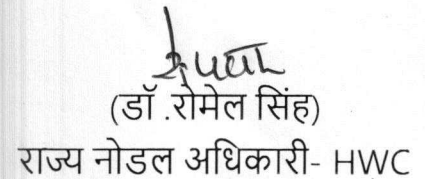 (डॉ .रोमेल सिंह)
राज्य नोडल अधिकारी- HWC